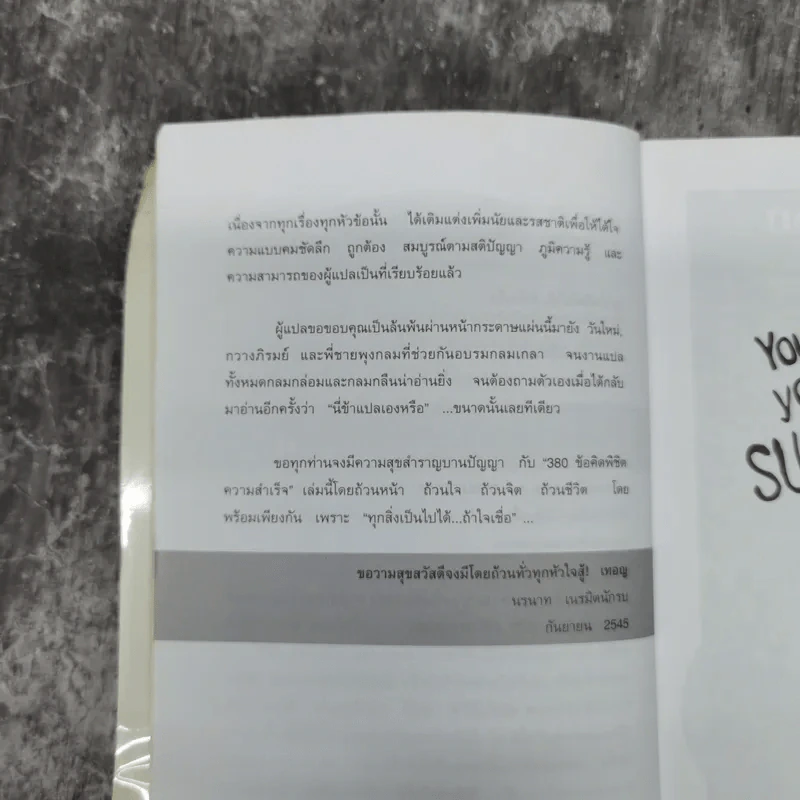 เนื่องจากทุกเรื่องทุกหัวข้อนั้น ได้เติมแต่งเพิ่มนัยและรสชาติเพื่อให้ได้ใจ
ความแบบคมชัดลึก ถูกต้อง สมบูรณ์ตามสติปัญญา ภูมิความรู้ และ
ความสามารถของผู้แปลเป็นที่เรียบร้อยแล้ว
ผู้แปลขอขอบคุณเป็นล้นพ้นผ่านหน้ากระดาษแผ่นนี้มายัง วันใหม่,
กวางภิรมย์ และพี่ชายพุงกลมที่ช่วยกันอบรมกลมเกลา จนงานแปล
ทั้งหมดกลมกล่อมและกลมกลืนน่าอ่านยิ่ง จนต้องถามตัวเองเมื่อได้กลับ
มาอ่านอีกครั้งว่า "นี่ข้าแปลเองหรือ" ...ขนาดนั้นเลยทีเดียว
ขอทุกท่านจงมีความสุขสำราญบานปัญญา กับ "380 ข้อคิดพิชิต
ความสำเร็จ" เล่มนี้โดยถ้วนหน้า ถ้วนใจ ถ้วนจิต ถ้วนชีวิต โดย
พร้อมเพียงกัน เพราะ "ทุกสิ่งเป็นไปได้...ถ้าใจเชื่อ" ...
ขอวามสุขสวัสดีจงมีโดยถ้วนทั่วทุกหัวใจสู้! เทอญ
นรนาท เนรมิตนักรบ
กันยายน 2545